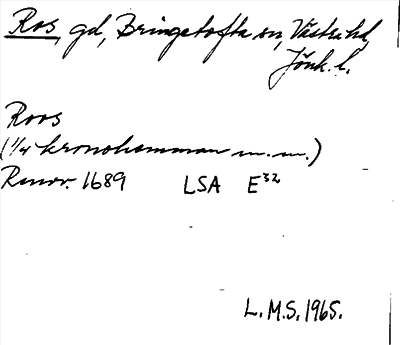 Ros, gd, Bringetofta sn, Västra hd,
Jönk. l.
Roos
(1/4 kronohemman m.m.)
Renov. 1689 LSA E32
L.M.S. 1965.